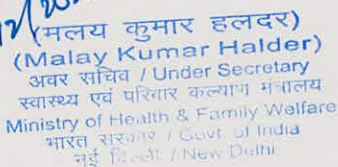 (मलय कुमार हलदर)
(Malay Kumar Halder)
अवर सचिव / Under Secretary
स्वास्थ्य एवं परिवार कल्याण मंत्रालय
Ministry of Health & Family Welfare
भारत सरकार / Govt. of India
नई दिल्ली / New Delhi